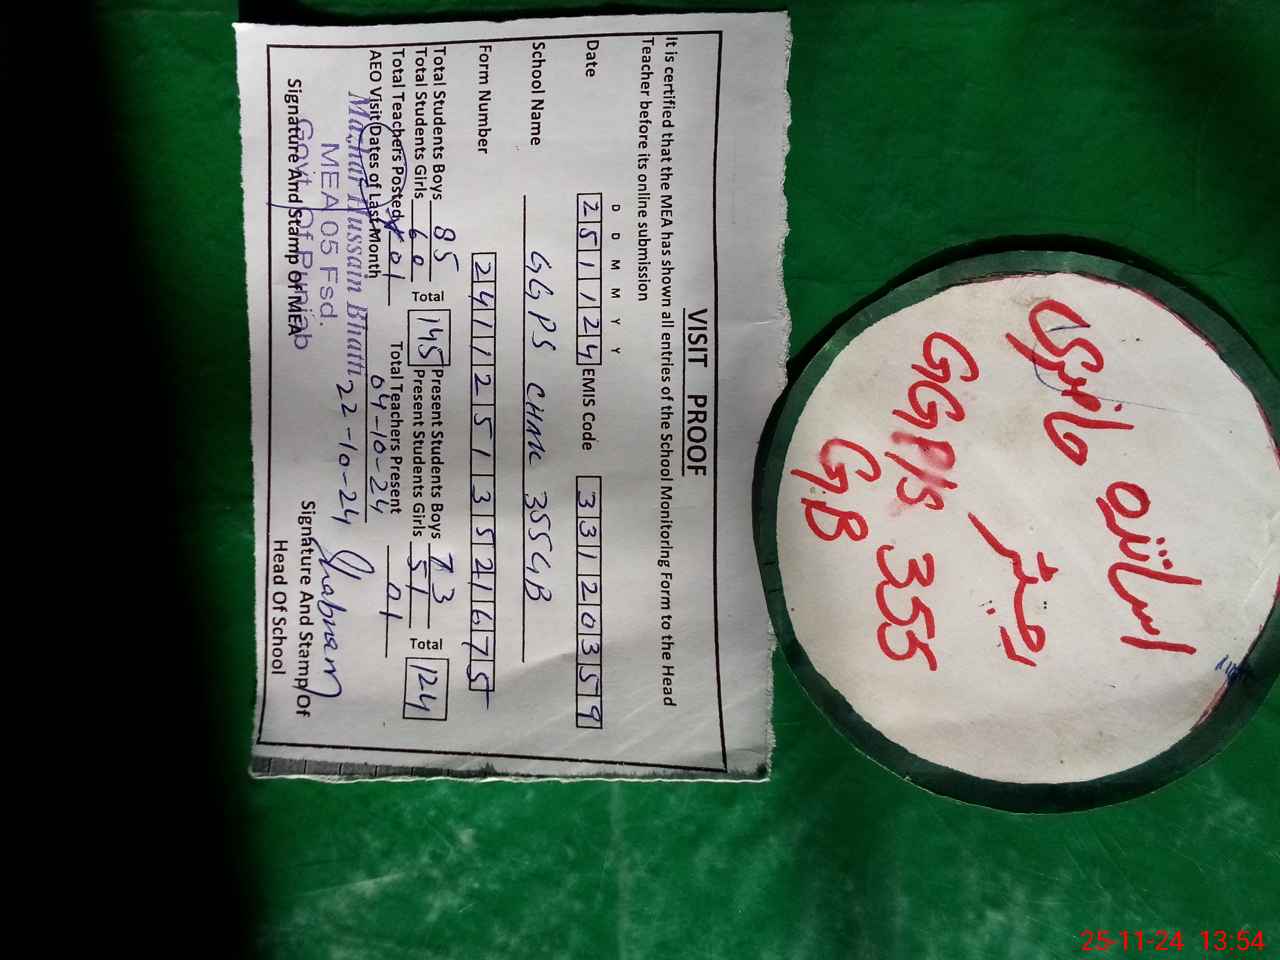 VISIT PROOF
It is certified that the MEA has shown all entries of the School Monitoring Form to the Head
Teacher before its online submission
D D M M Y Y
Date 251124 EMIS Code 33120359
School Name GGPS CHAK 355GB
Form Number 24112513521675
Total Students Boys 85 Total 145 Present Students Boys 73 Total 124
Total Students Girls 60 Present Students Girls 51
Total Teachers Posted 01 Total Teachers Present 01
AEO Visit Dates of Last Month 04-10-24
22-10-24
Mazhar Hussain Bhatti
MEA 05 Fsd.
Govt. Of Punjab
Signature And Stamp of MEA
Shabnam
Signature And Stamp Of
Head Of School
اساتذہ حاضری
رجسٹر
GGP/S 355
G.B
25-11-24 13:54